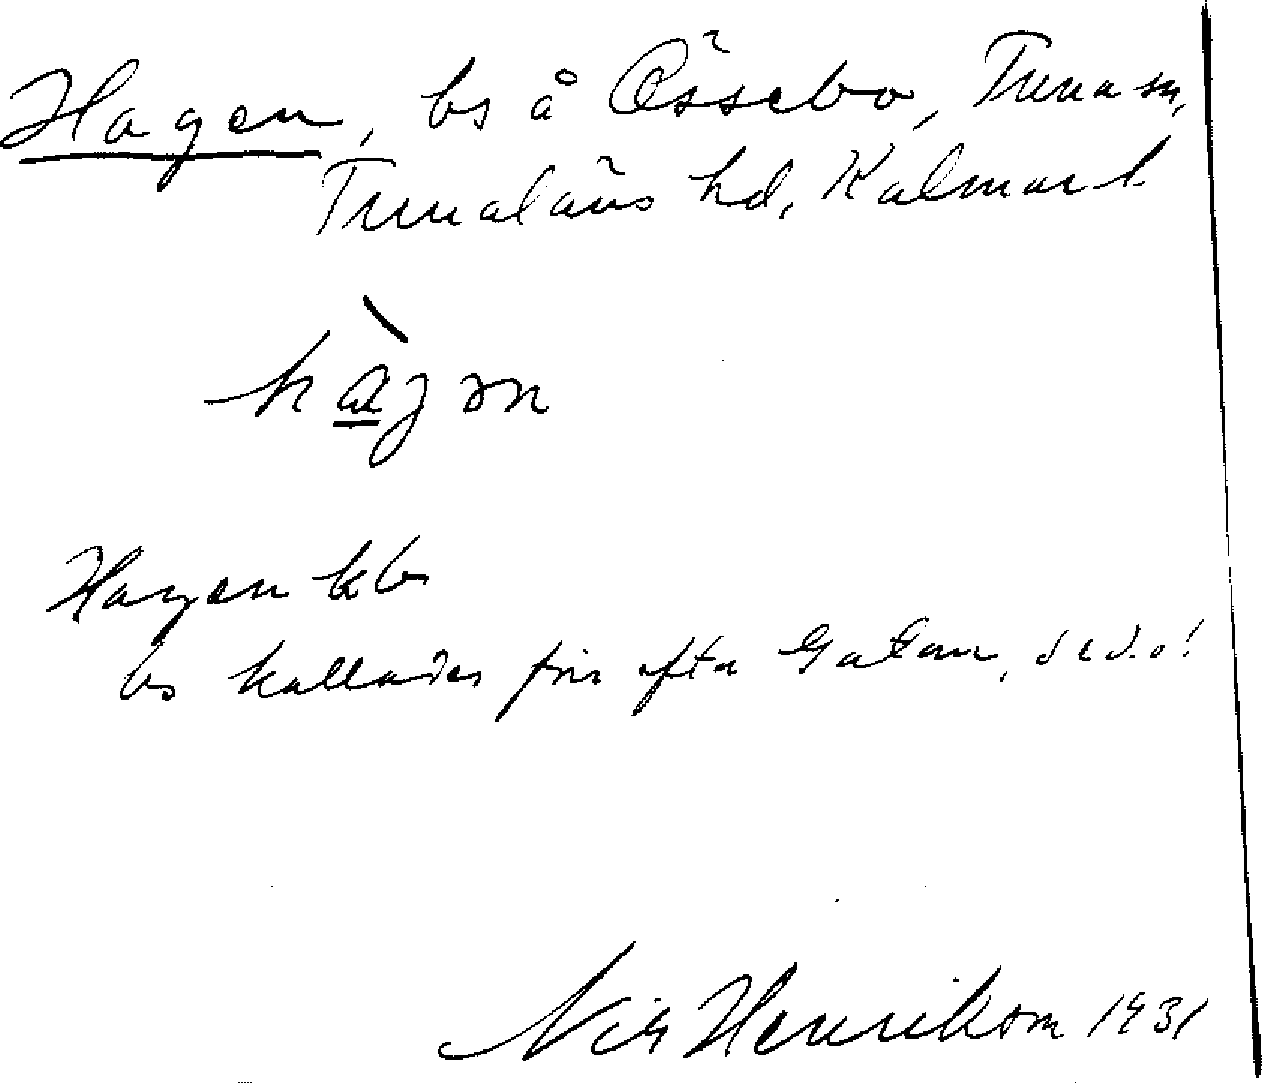 Hagen, bs å Össebo, Tuna sn,
Tunaläns hd, Kalmar l.
hàgən
Hagen kbs
bs kallades förr ofta Gatan, se d.o!
Nils Henrikson 1931